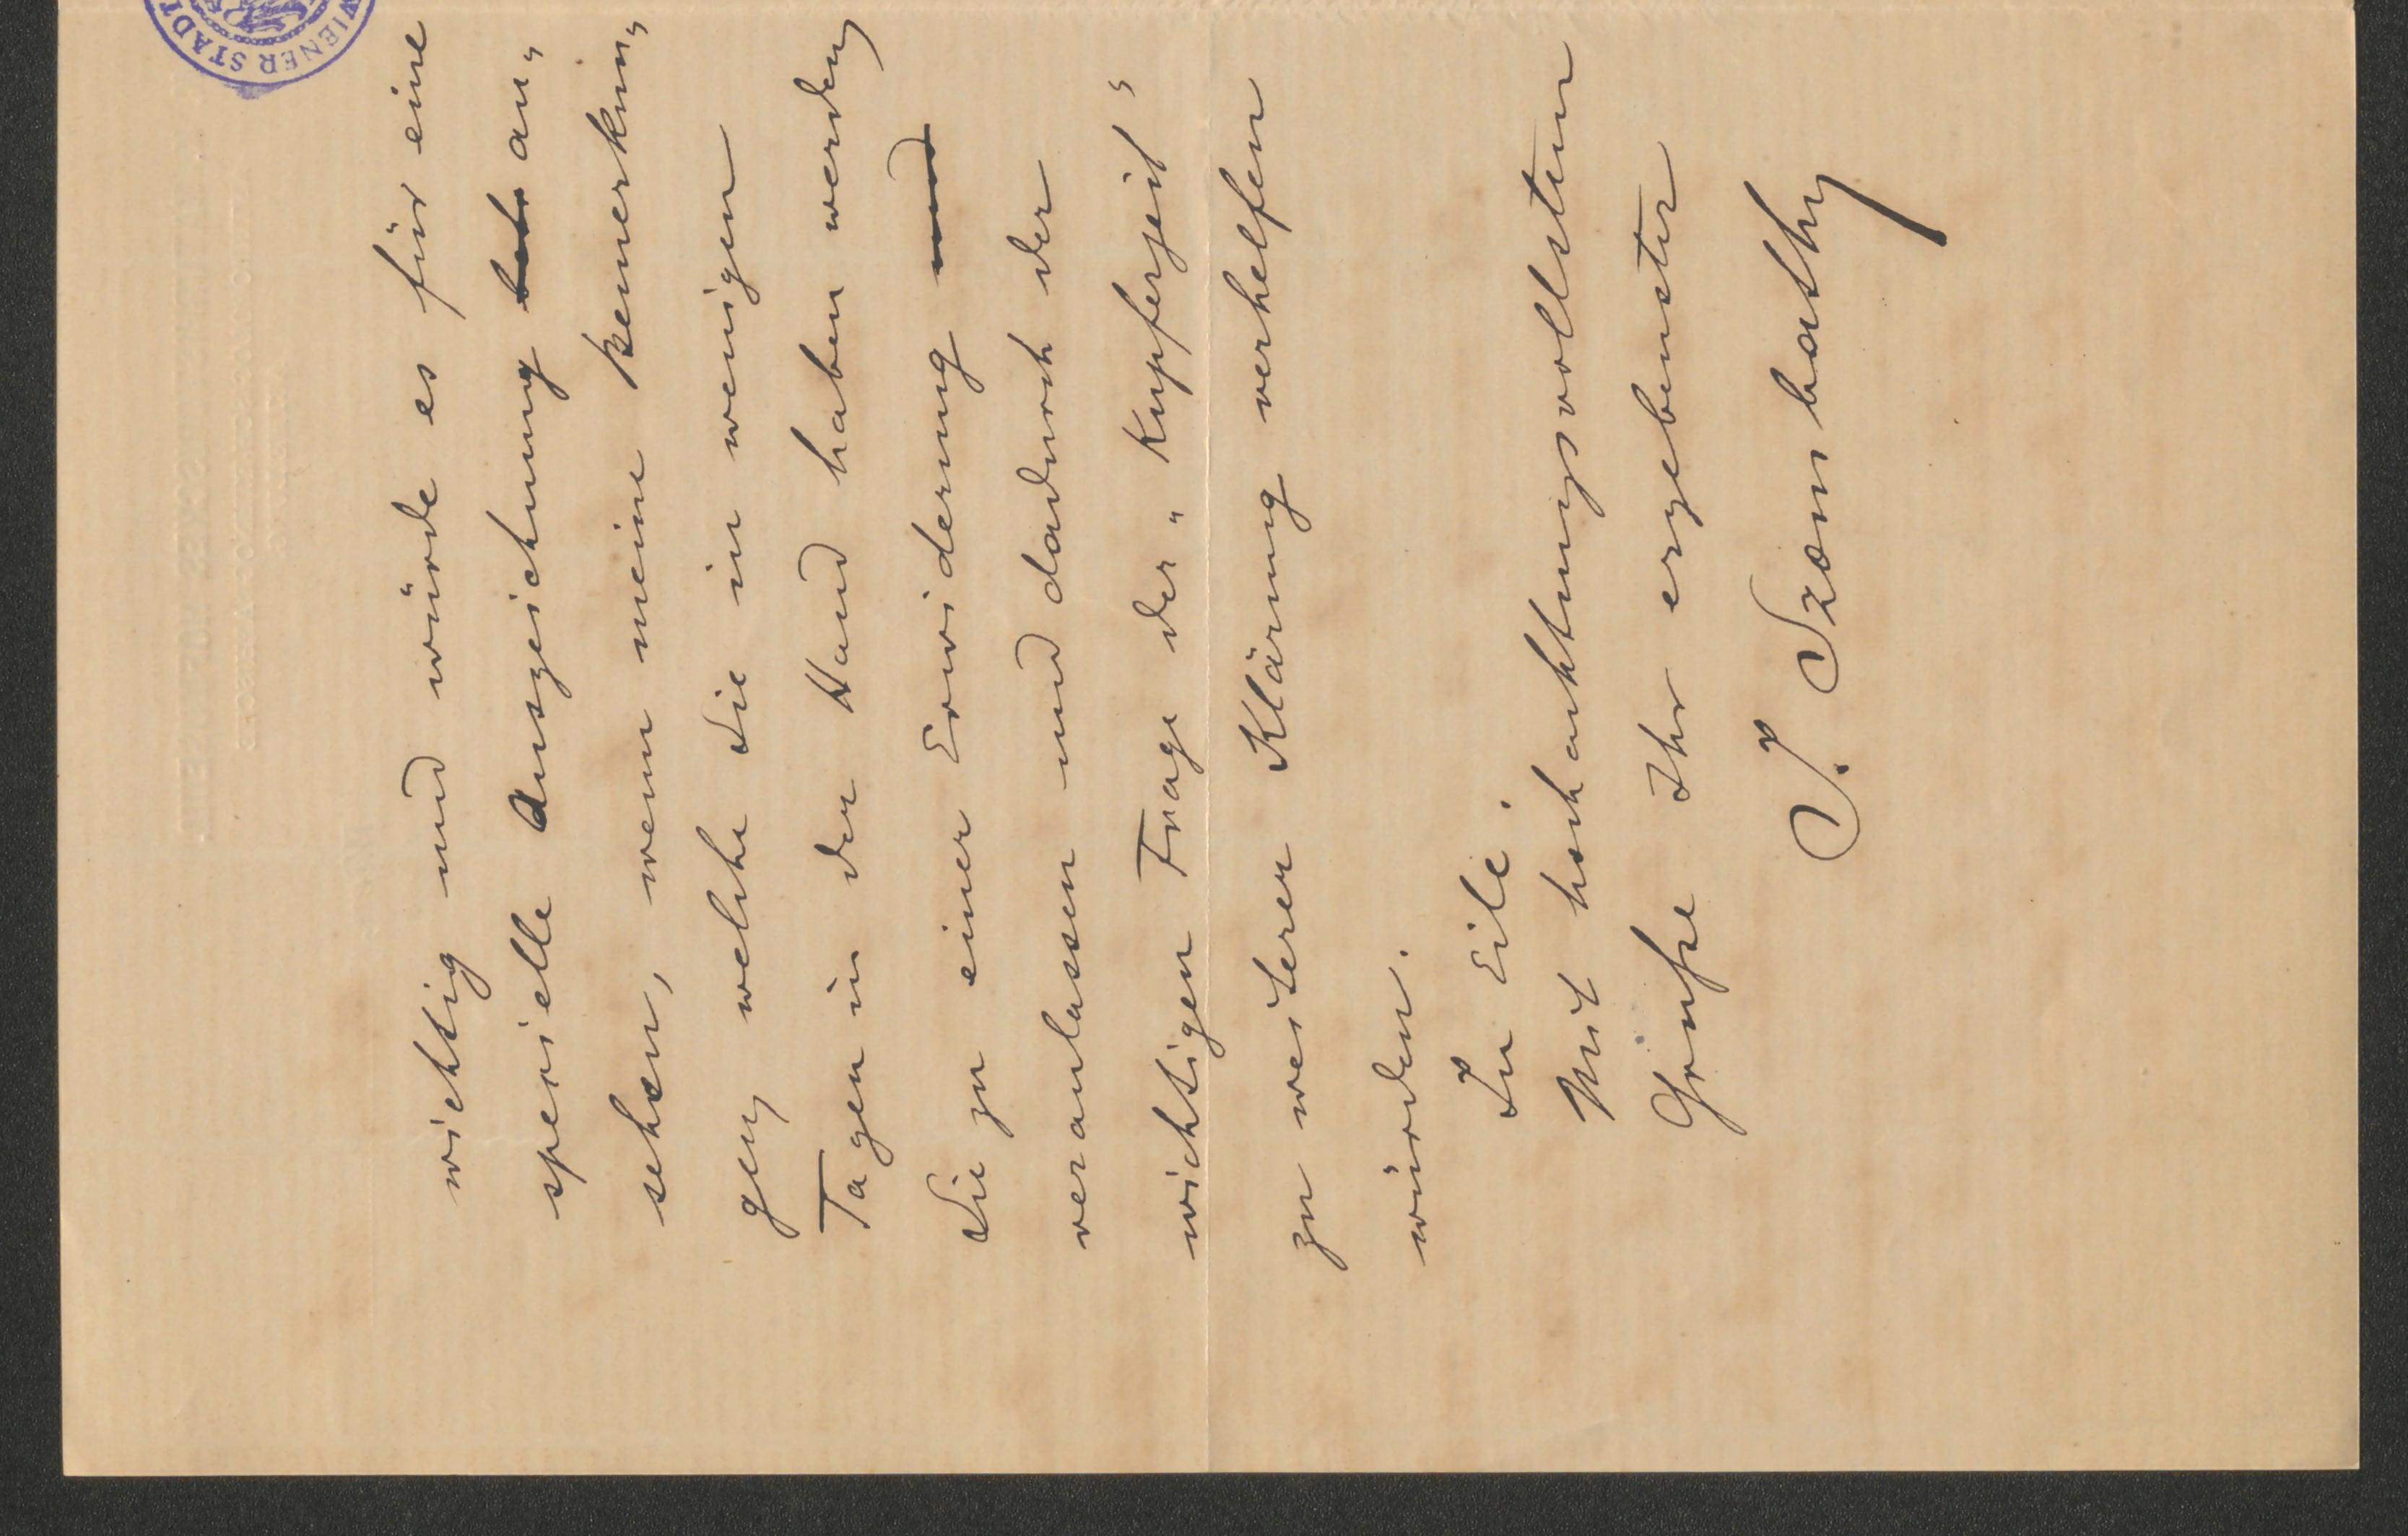 wichtig und würde es für eine
specielle Auszeichnung an„
sehen, wenn meine Bemerkun„
gen, welche Sie in wenigen
Tagen in der Hand haben werden,
Sie zu einer Erwiderung und
veranlassen und dadurch der
wichtigen Frage der „Kupferzeit“
zu weiterer Klärung verhelfen
würden.
In Eile.
Mit hochachtungsvollstem
Grusse Ihr ergebenster
J. Szombathy
WIENER STADT